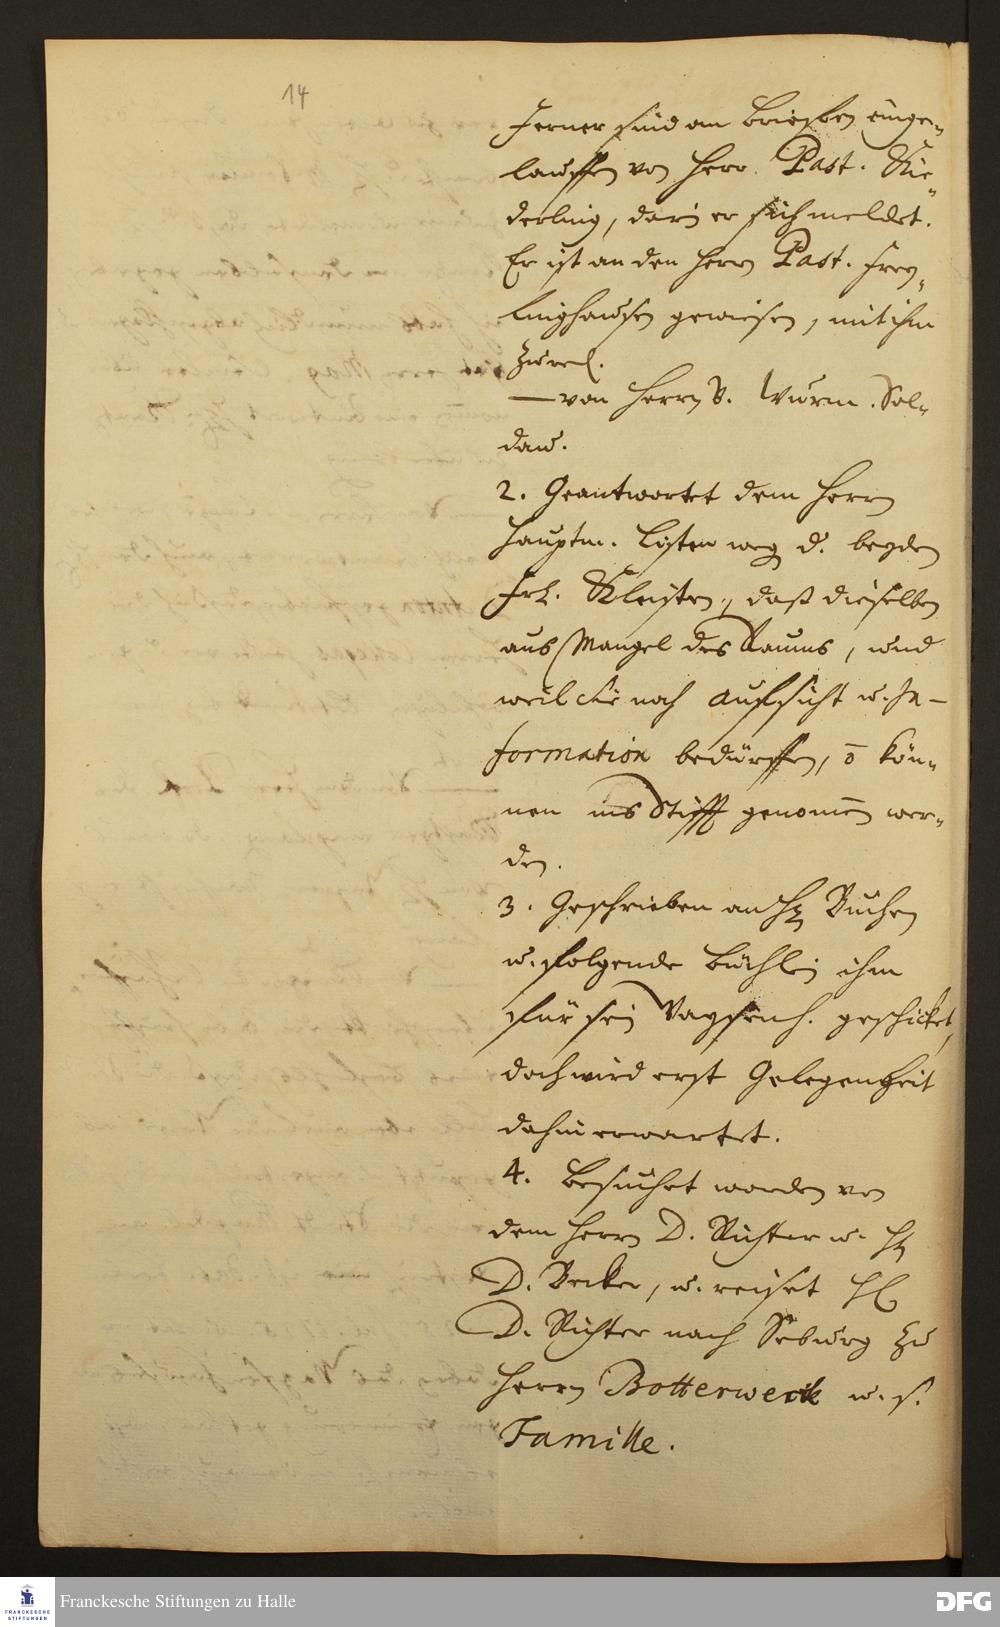 14
Ferner sind an Brieffen einge-
lauffen von Herr. Past. Kie-
derling, darin er sich meldet.
Er ist an den Herrn Past. Frey-
linghausen gewiesen, mit ihm
zu red.
— von Herrn V. Wurm. Sol-
dau.
2. Geantwortet dem Herrn
Hauptm. Listen weg d. beyden
Frl. Kleisten, daß dieselben
aus Mangel des Raums, und
weil sie noch Aufsicht u. In-
formation bedürffen, ō kön-
nen ins Stifft genomēn wer-
den.
3. Geschrieben an H. Buchen
u. folgende Büchlein ihm
für sein Waysenh. geschicket,
doch wird erst Gelegenheit
dahin erwartet.
4. Besuchet worden von
dem Herrn D. Richter u. H.
D. Becker, u. reiset H.
D. Richter nach Seburg zu
Herrn Botterweck u. s.
Famille.
FRANCKESCHE
STIFTUNGEN
Franckesche Stiftungen zu Halle
DFG